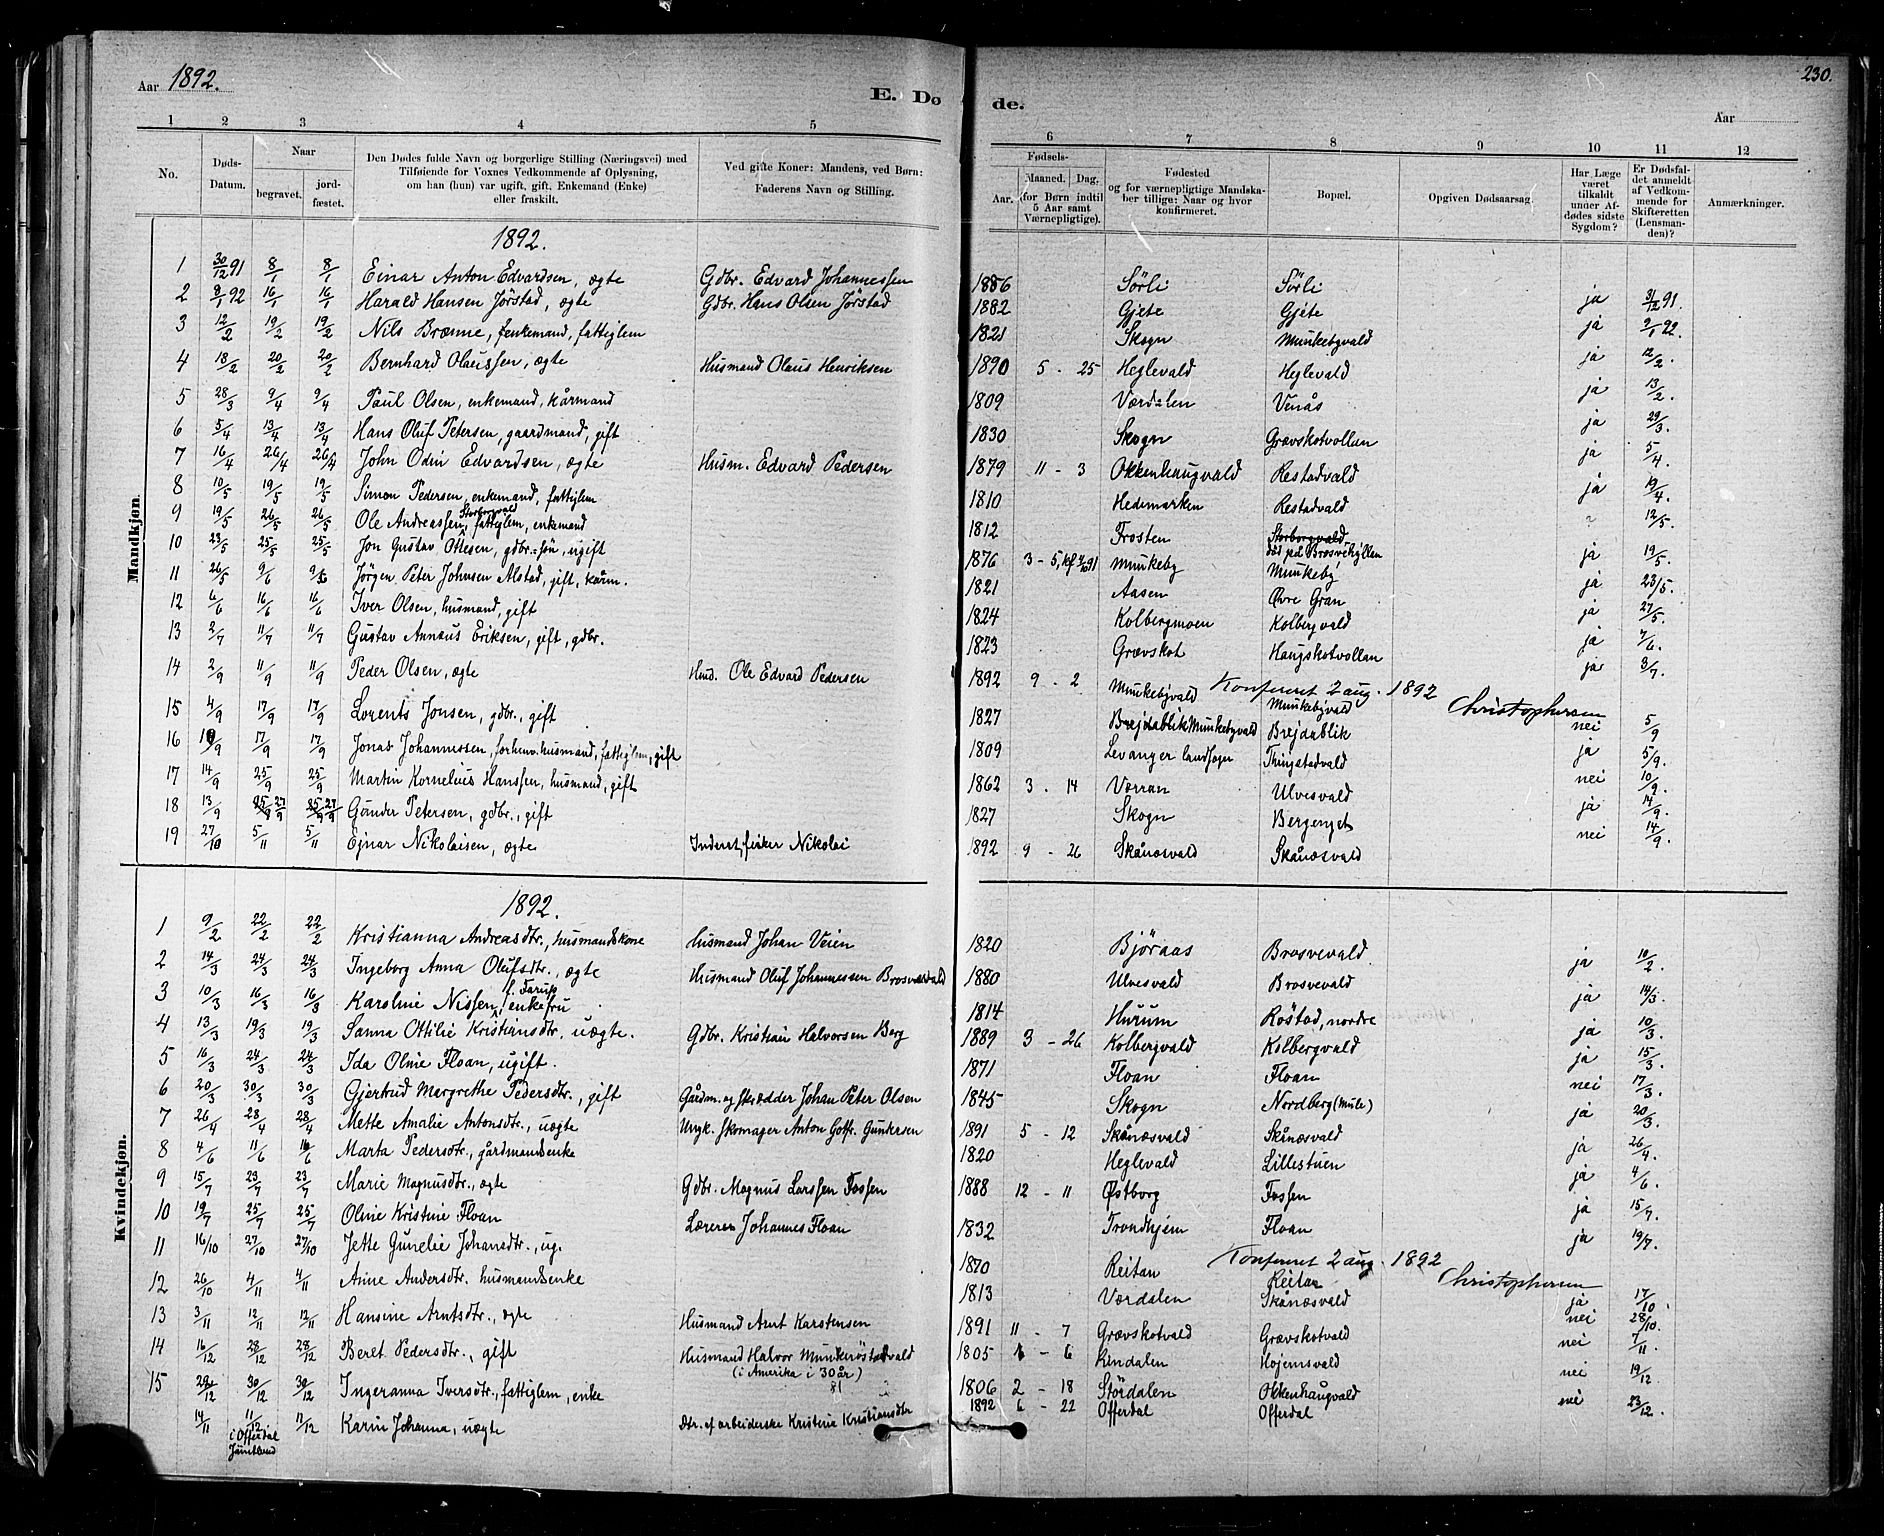 Aar 1892.
E. Dø de.
230.
Aar
1 2 3 4 5 6 7 8 9 10 11 12
No.
Døds-Datum.
Naar
begravet.
jord-fæstet.
Den Dødes fulde Navn og borgerlige Stilling (Næringsvei) med
Tilføiende for Voxnes Vedkommende af Oplysning,
om han (hun) var ugift, gift, Enkemand (Enke)
eller fraskilt.
Ved gifte Koner: Mandens, ved Børn:
Faderens Navn og Stilling.
Fødsels-
Aar.
Maaned. Dag.
(for Børn indtil
5 Aar samt
Værnepligtige).
Fødested
og for værnepligtige Mandska-
ber tillige: Naar og hvor
konfirmeret.
Bopæl.
Opgiven Dødsaarsag.
Har Læge
været
tilkaldt
under Af-
dødes sidste
Sygdom?
Er Dødsfal-
det anmeldt
af Vedkom-
mende for
Skifteretten
(Lensman-
den)?
Anmærkninger.
Mandkjøn.
1892.
1 30/12 91 8/1 8/1 Einar Anton Edvardsen, ægte Gdbr. Edvard Johannessen 1886 Sørli Sørli ja 31/12 91.
2 8/1 92 16/1 16/1 Harald Hansen Jørstad, ægte Gdbr. Hans Olsen Jørstad 1882 Gjete Gjete ja 9/1 92.
3 12/2 19/2 19/2 Nils Brænne, enkemand, fattiglem 1821 Skogn Munkebyvald ja 12/2.
4 18/2 20/2 20/2 Bernhard Olaussen, ægte Husmand Olaus Henriksen 1890 5 - 25 Heglevald Heglevald ja 13/2.
5 28/3 9/4 9/4 Paul Olsen, enkemand, kårmand 1809 Værdalen Venås ja 29/3.
6 5/4 13/4 13/4 Hans Oluf Petersen, gaardmand, gift 1830 Skogn Grævskotvollan ja 5/4.
7 16/4 26/4 26/4 John Odin Edvardsen, ægte Husm. Edvard Pedersen 1879 11 - 3 Okkenhaugvald Restadvald ja 19/4.
8 10/5 19/5 19/5 Simon Pedersen, enkemand, fattiglem 1810 Hedemarken Restadvald ? 12/5.
9 19/5 26/5 26/5 Ole Andreassen Storborgvald, fattiglem, enkemand 1812 Frosten Storborgvald død på Brosvehyllan ja 19/5.
10 23/5 25/5 25/5 Jon Gustav Ottesen, gdbr. søn, ugift 1876 3 - 5, Munkeby Munkeby ja 23/5.
11 26/5 9/6 9/6 Jørgen Peter Johnsen Alstad, gift, kårm. 1821 Aasen Øvre Gran ja 27/5.
12 6/6 16/6 16/6 Iver Olsen, husmand, gift 1824 Kolbergmoen Kolbergvald ja 7/6.
13 2/7 11/7 11/7 Gustav Annæus Eriksen, gift, gdbr. 1823 Grævskot Haugskotvollan ja 3/7.
14 2/9 11/9 11/9 Peder Olsen, ægte Hmd. Ole Edvard Pedersen 1892 9 - 2 Munkebyvald Munkebyvald nei 5/9
Konfereret 2 aug. 1892 Christophersen
15 4/9 17/9 17/9 Lorents Jonsen, gdbr., gift 1827 Brejdablik Munkebyvald Brejdablik ja 5/9.
16 10/9 17/9 17/9 Jonas Johannessen, forhenv. husmand, fattiglem, gift 1809 Levanger landsogn Thingstadvald nei 10/9.
17 14/9 25/9 25/9 Martin Kornelius Hanssen, husmand, gift 1862 3 . 14 Værran Ulvesvald ja 14/9.
18 13/9 27/9 27/9 Gunder Petersen, gdbr., gift 1827 Skogn Bergenget nei 14/9.
19 27/10 5/11 5/11 Ejnar Nikolaisen, ægte Inderst, fisker Nikolai 1892 9 - 26 Skånæsvald Skånæsvald
Kvindekjøn.
1892.
1 9/2 22/2 22/2 Kristianna Andreasdtr., husmandskone Husmand Johan Veien 1820 Bjøraas Brosvevald ja 10/2.
2 14/3 24/3 24/3 Ingeborg Anna Olufsdtr., ægte Husmand Oluf Johannessen Brosvevald 1880 Ulvesvald Brosvevald ja 14/3.
3 10/3 16/3 16/3 Karoline Nissen f. Farup, enkefru 1814 Hurum Røstad, nordre ja 10/3
4 13/3 19/3 19/3 Sanna Ottilie Kristiansdtr., uægte. Gdbr. Kristian Halvorsen Berg 1889 3 - 26 Kolbergvald Kolbergvald ja 15/3.
5 16/3 24/3 24/3 Ida Oline Floan, ugift. 1871 Floan Floan nei 17/3.
6 20/3 30/3 30/3 Gjertrud Margrethe Pedersdtr., gift Gårdm. og skrædder Johan Peter Olsen 1845 Skogn Nordberg (Mule) ja 20/3.
7 26/4 28/4 28/4 Mette Amalie Antonsdtr., uægte Ungk. skomager Anton Gotfr. Gundersen 1891 5 - 12 Skånæsvald Skånæsvald ja 26/4.
8 4/6 11/6 11/6 Marta Pedersdtr., gårdmandsenke 1820 Heglevald Lillestuen ja 4/6.
9 15/7 23/7 23/7 Marie Magnusdtr., ægte Gdbr. Magnus Larssen Fossen 1888 12 - 11 Østborg Fossen ja 15/7.
10 19/7 25/7 25/7 Oline Kristine Floan Læreren Johannes Floan 1832 Trondhjem Floan ja 19/7.
Konfereret 2 aug. 1892 Christophersen
11 16/10 27/10 27/10 Jette Gunelie Johansdtr., ug. 1870 Reitan Reitan ja 17/10.
12 26/10 4/11 4/11 Anne Andersdtr. husmandsenke 1813 Værdalen Skånæsvald nei 28/10.
13 3/11 12/11 12/11 Hansine Arntsdtr., ægte Husmand Arnt Karstensen 1891 11 - 7 Grævskotvald Grævskotvald nei 7/11.
14 16/12 28/12 28/12 Beret Pedersdtr., gift Husmand Halvor Munkrøstadvald (i Amerika i 30 år) 1805 1 - 6 Rindalen Hojemsvald nei 19/12
15 22/12 30/12 30/12 Ingeranna Iversdtr., fattiglem, enke 1806 2 - 18 Størdalen Okkenhaugvald nei 23/12.
14/11 11/12 i Offerdal Jämtland 11/12 Karin Johanna, uægte dtr. af arbeiderske Kristine Kristiansdtr 1892 6 - 22 Offerdal Offerdal